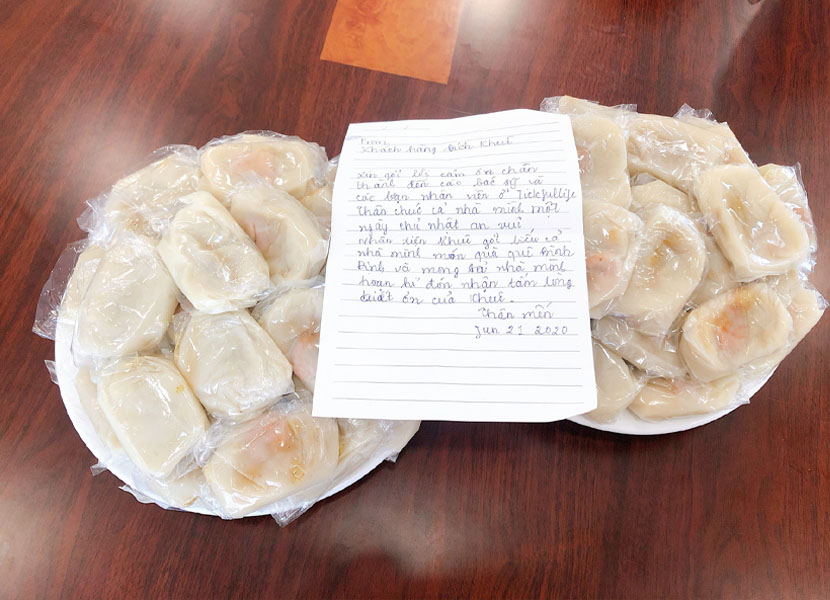 From
Khách hàng Bích Khuê
xin gởi lời cảm ơn chân
thành đến các bác sỹ và
các bạn nhân viên ở Jickfullife
Thân chúc cả nhà mình một
ngày chủ nhật an vui
Nhân tiện Khuê gởi biếu cả
nhà mình món quà quê Bình
Định và mong cả nhà mình
hoan hỉ đón nhận tấm lòng
biết ơn của Khuê.
Thân mến
Jun 21 2020